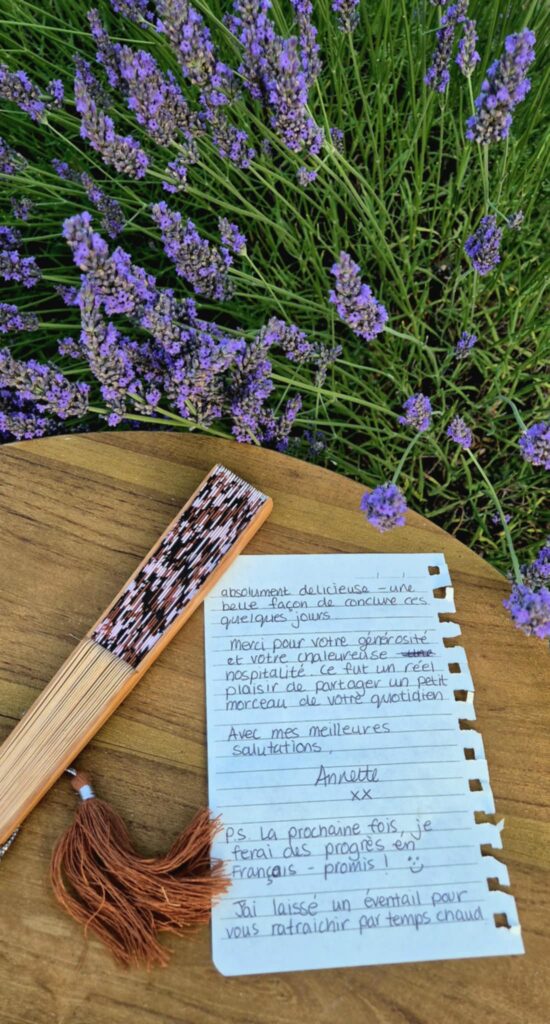 absolument delicieuse - une
belle façon de conclure ces
quelques jours
Merci pour votre générosité
et votre chaleureuse
hospitalité. Ce fut un réel
plaisir de partager un petit
morceau de votre quotidien
Avec mes meilleures
salutations,
Annette
xx
P.S. La prochaine fois, je
ferai des progrès en
Français - promis! :)
J'ai laissé un éventail pour
vous rafraichir par temps chaud